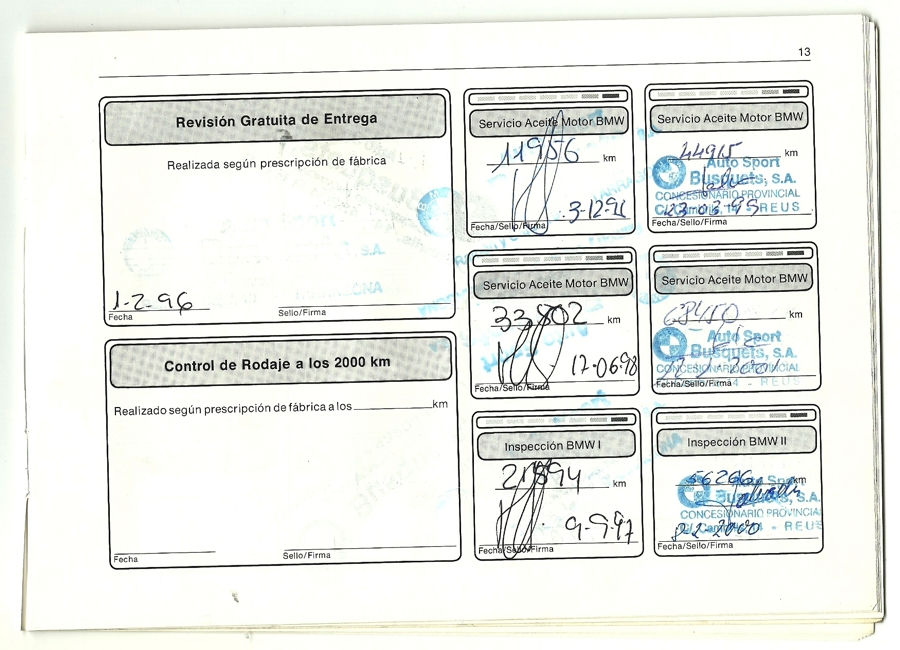 13
Revisión Gratuita de Entrega
Realizada según prescripción de fábrica
1-2-96
Fecha
Sello/Firma
Control de Rodaje a los 2000 km
Realizado según prescripción de fábrica a los km
Fecha
Sello/Firma
Servicio Aceite Motor BMW
11956 km
3-12-96
Fecha/Sello/Firma
Servicio Aceite Motor BMW
44915 km
Auto Sport
Busquets, S.A.
CONCESIONARIO PROVINCIAL
23-03-99
- REUS
Fecha/Sello/Firma
Servicio Aceite Motor BMW
33802 km
17-06-98
Fecha/Sello/Firma
Servicio Aceite Motor BMW
68450 km
Auto Sport
Busquets, S.A.
CONCESIONARIO PROVINCIAL
2001
- REUS
Fecha/Sello/Firma
Inspección BMW I
21894 km
9-9-97
Fecha/Sello/Firma
Inspección BMW II
56266 km
Busquets, S.A.
CONCESIONARIO PROVINCIAL
8-2-2000
- REUS
Fecha/Sello/Firma